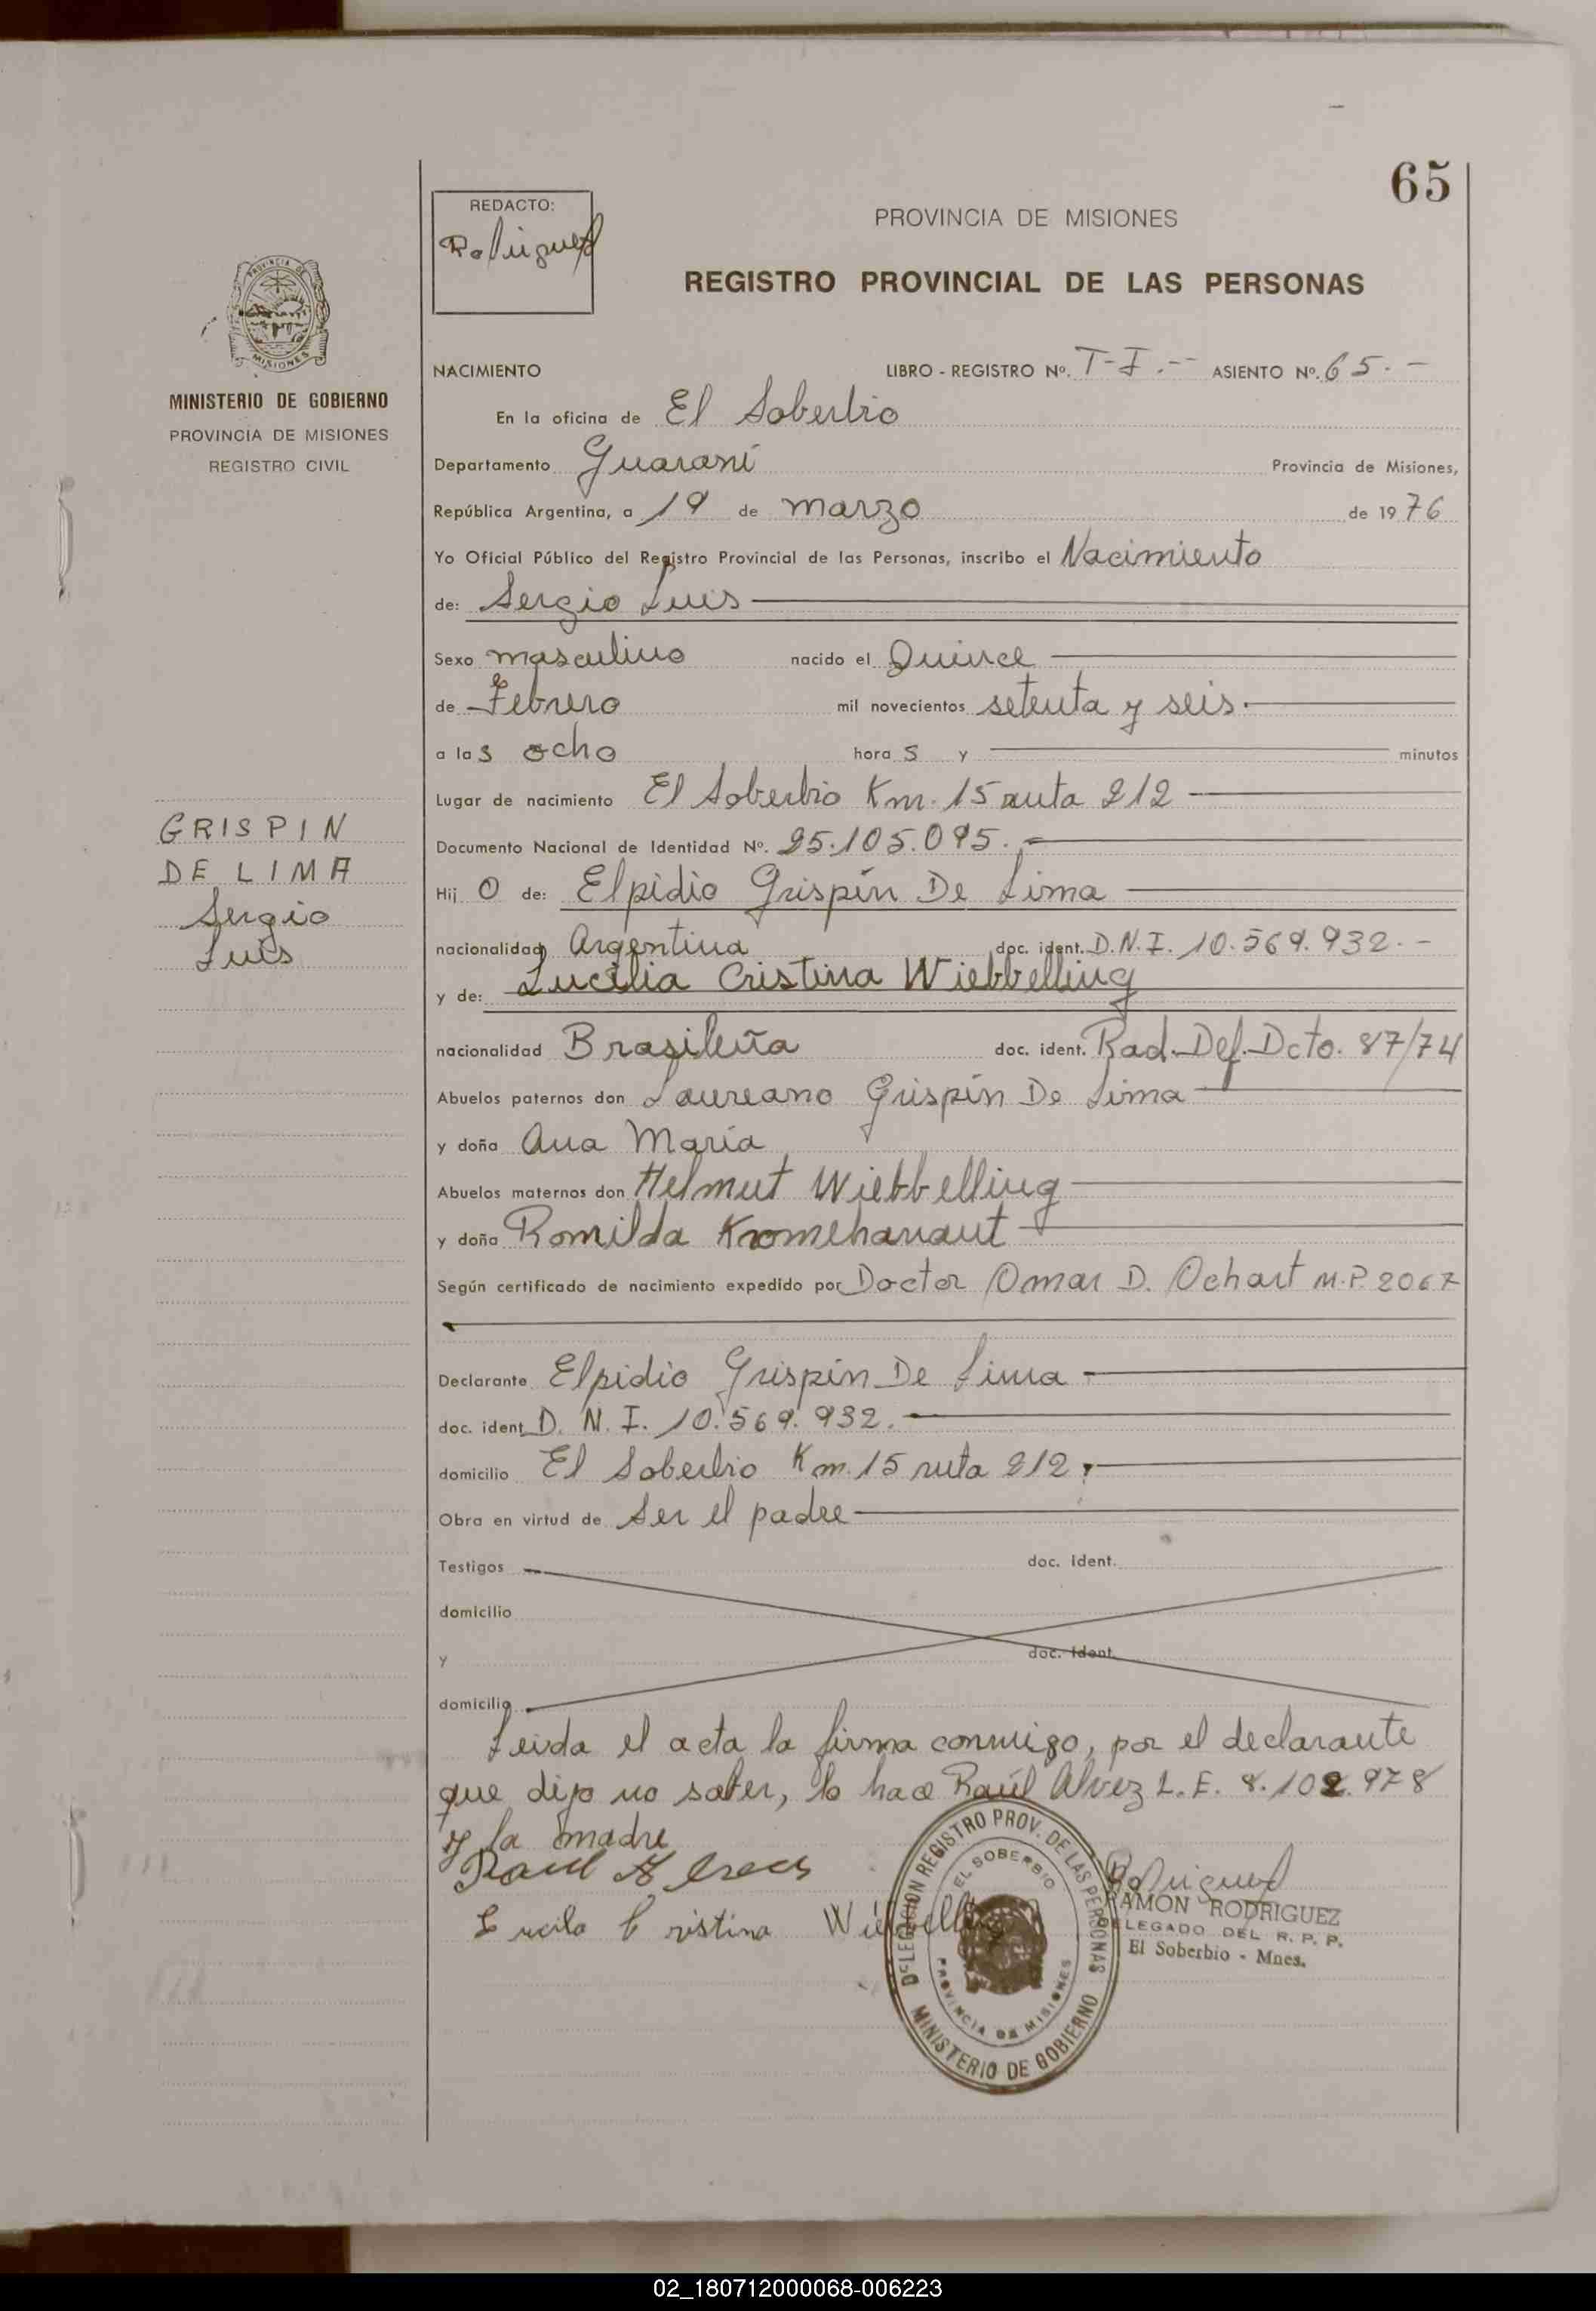 65
REDACTO:
Rodriguez
PROVINCIA DE MISIONES
REGISTRO PROVINCIAL DE LAS PERSONAS
PROVINCIA DE
MISIONES
MINISTERIO DE GOBIERNO
PROVINCIA DE MISIONES
REGISTRO CIVIL
NACIMIENTO LIBRO - REGISTRO Nº. T-I.-- ASIENTO Nº. 65.-
En la oficina de El Soberbio
Departamento Guaraní Provincia de Misiones,
República Argentina, a 19 de marzo de 1976
Yo Oficial Público del Registro Provincial de las Personas, inscribo el Nacimiento
de: Sergio Luis
Sexo masculino nacido el Quince
de Febrero mil novecientos setenta y seis.
a las ocho horas y minutos
Lugar de nacimiento El Soberbio Km. 15 ruta 212
Documento Nacional de Identidad Nº. 25.105.095.-
GRISPIN
DE LIMA
Sergio
Luis
Hijo de: Elpidio Grispín De Lima
nacionalidad Argentina doc. ident. D.N.I. 10.569.932.-
y de: Lucilia Cristina Wiebbelling
nacionalidad Brasileña doc. ident. Rad. Def. Dcto. 87/74
Abuelos paternos don Laureano Grispín De Lima
y doña Ana María
Abuelos maternos don Helmut Wiebbelling
y doña Romilda
Según certificado de nacimiento expedido por Doctor Omar D. Ochart M.P. 2067
Declarante Elpidio Grispín De Lima
doc. ident. D.N.I. 10.569.932.
domicilio El Soberbio Km. 15 ruta 212.
Obra en virtud de ser el padre
Testigos doc. ident.
domicilio
y doc. ident.
domicilio
Leida el acta la firma conmigo, por el declarante
que dijo no saber, lo hace Raúl Alvez L.E. 8.102.978
y la madre
Raul
Lucila Cristina Wiebbelling
DELEGACION REGISTRO PROV. DE LAS PERSONAS
EL SOBERBIO
PROVINCIA DE MISIONES
MINISTERIO DE GOBIERNO
Rodriguez
RAMON RODRIGUEZ
DELEGADO DEL R. P. P.
El Soberbio - Mnes.
02_180712000068-006223